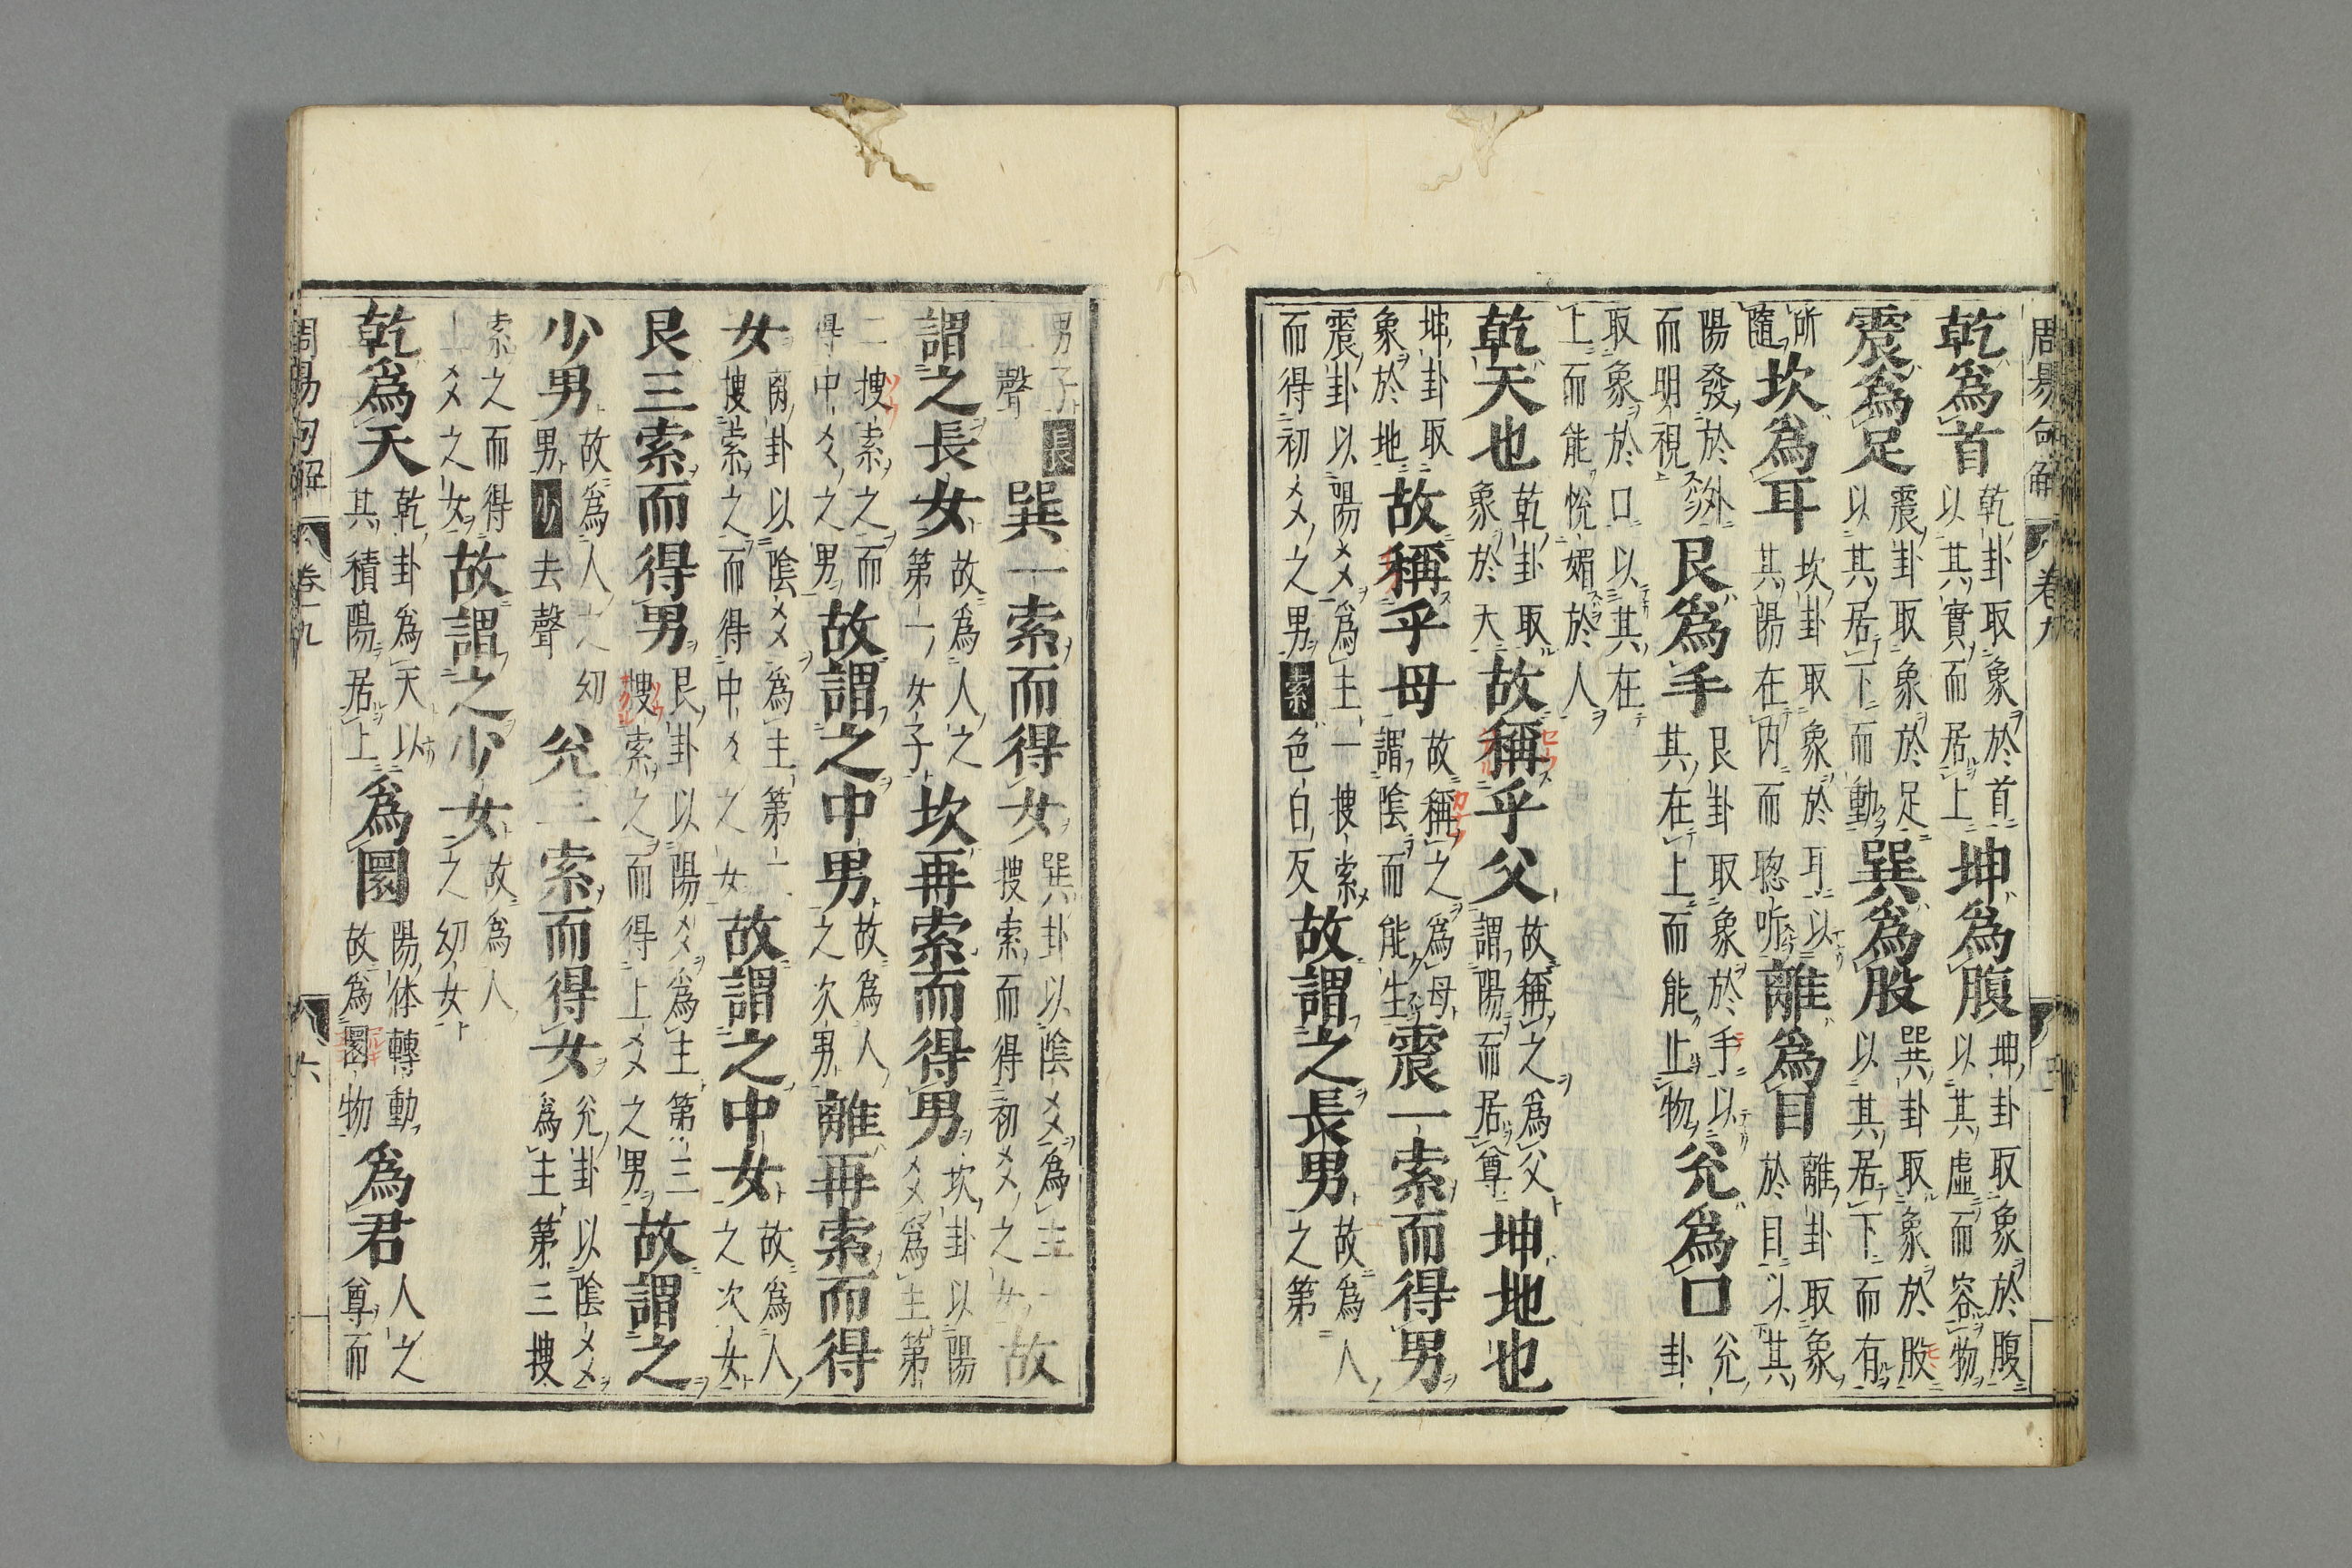 周易句解 卷九
乾爲首 乾卦取象於首 以其實而居上 坤爲腹 坤卦取象於腹 以其虛而容物
震爲足 震卦取象於足 以其居下而動 巽爲股 巽卦取象於股 以其居下而有
所隨 坎爲耳 坎卦取象於耳以 其陽在內而聰听 離爲目 離卦取象 於目以其
陽發於外 而明視 艮爲手 艮卦取象於手以 其在上而能止物 兌爲口 兌卦
取象於口以其在 上而能悅媚於人
乾天也 乾卦取 象於天 故稱乎父 故稱之爲父 謂陽而居尊 坤地也
坤卦取 象於地 故稱乎母 故稱之爲母 謂陰而能生 震一索而得男
震卦以陽爻爲主一搜索 而得初爻之男 索色白反 故謂之長男 故爲人 之第
男子長 聲 巽一索而得女 巽卦以陰爻爲主一 搜索而得初爻之女 故
謂之長女 故爲人之 第一女子 坎再索而得男 坎卦以陽 爻爲主第
二搜索之而 得中爻之男 故謂之中男 故爲人 之次男 離再索而得
女 离卦以陰爻爲主第二 搜索之而得中爻之女 故謂之中女 故爲人 之次女
艮三索而得男 艮卦以陽爻爲主第三 搜索之而得上爻之男 故謂之
少男 故爲人之幼 男少去聲 兌三索而得女 兌卦以陰爻 爲主第三搜
索之而得 上爻之女 故謂之少女 故爲人 之幼女
乾爲天 乾卦爲天以 其積陽居上 爲圜 陽体轉動 故爲圜物 爲君 人之 尊而
周易句解 卷九 六